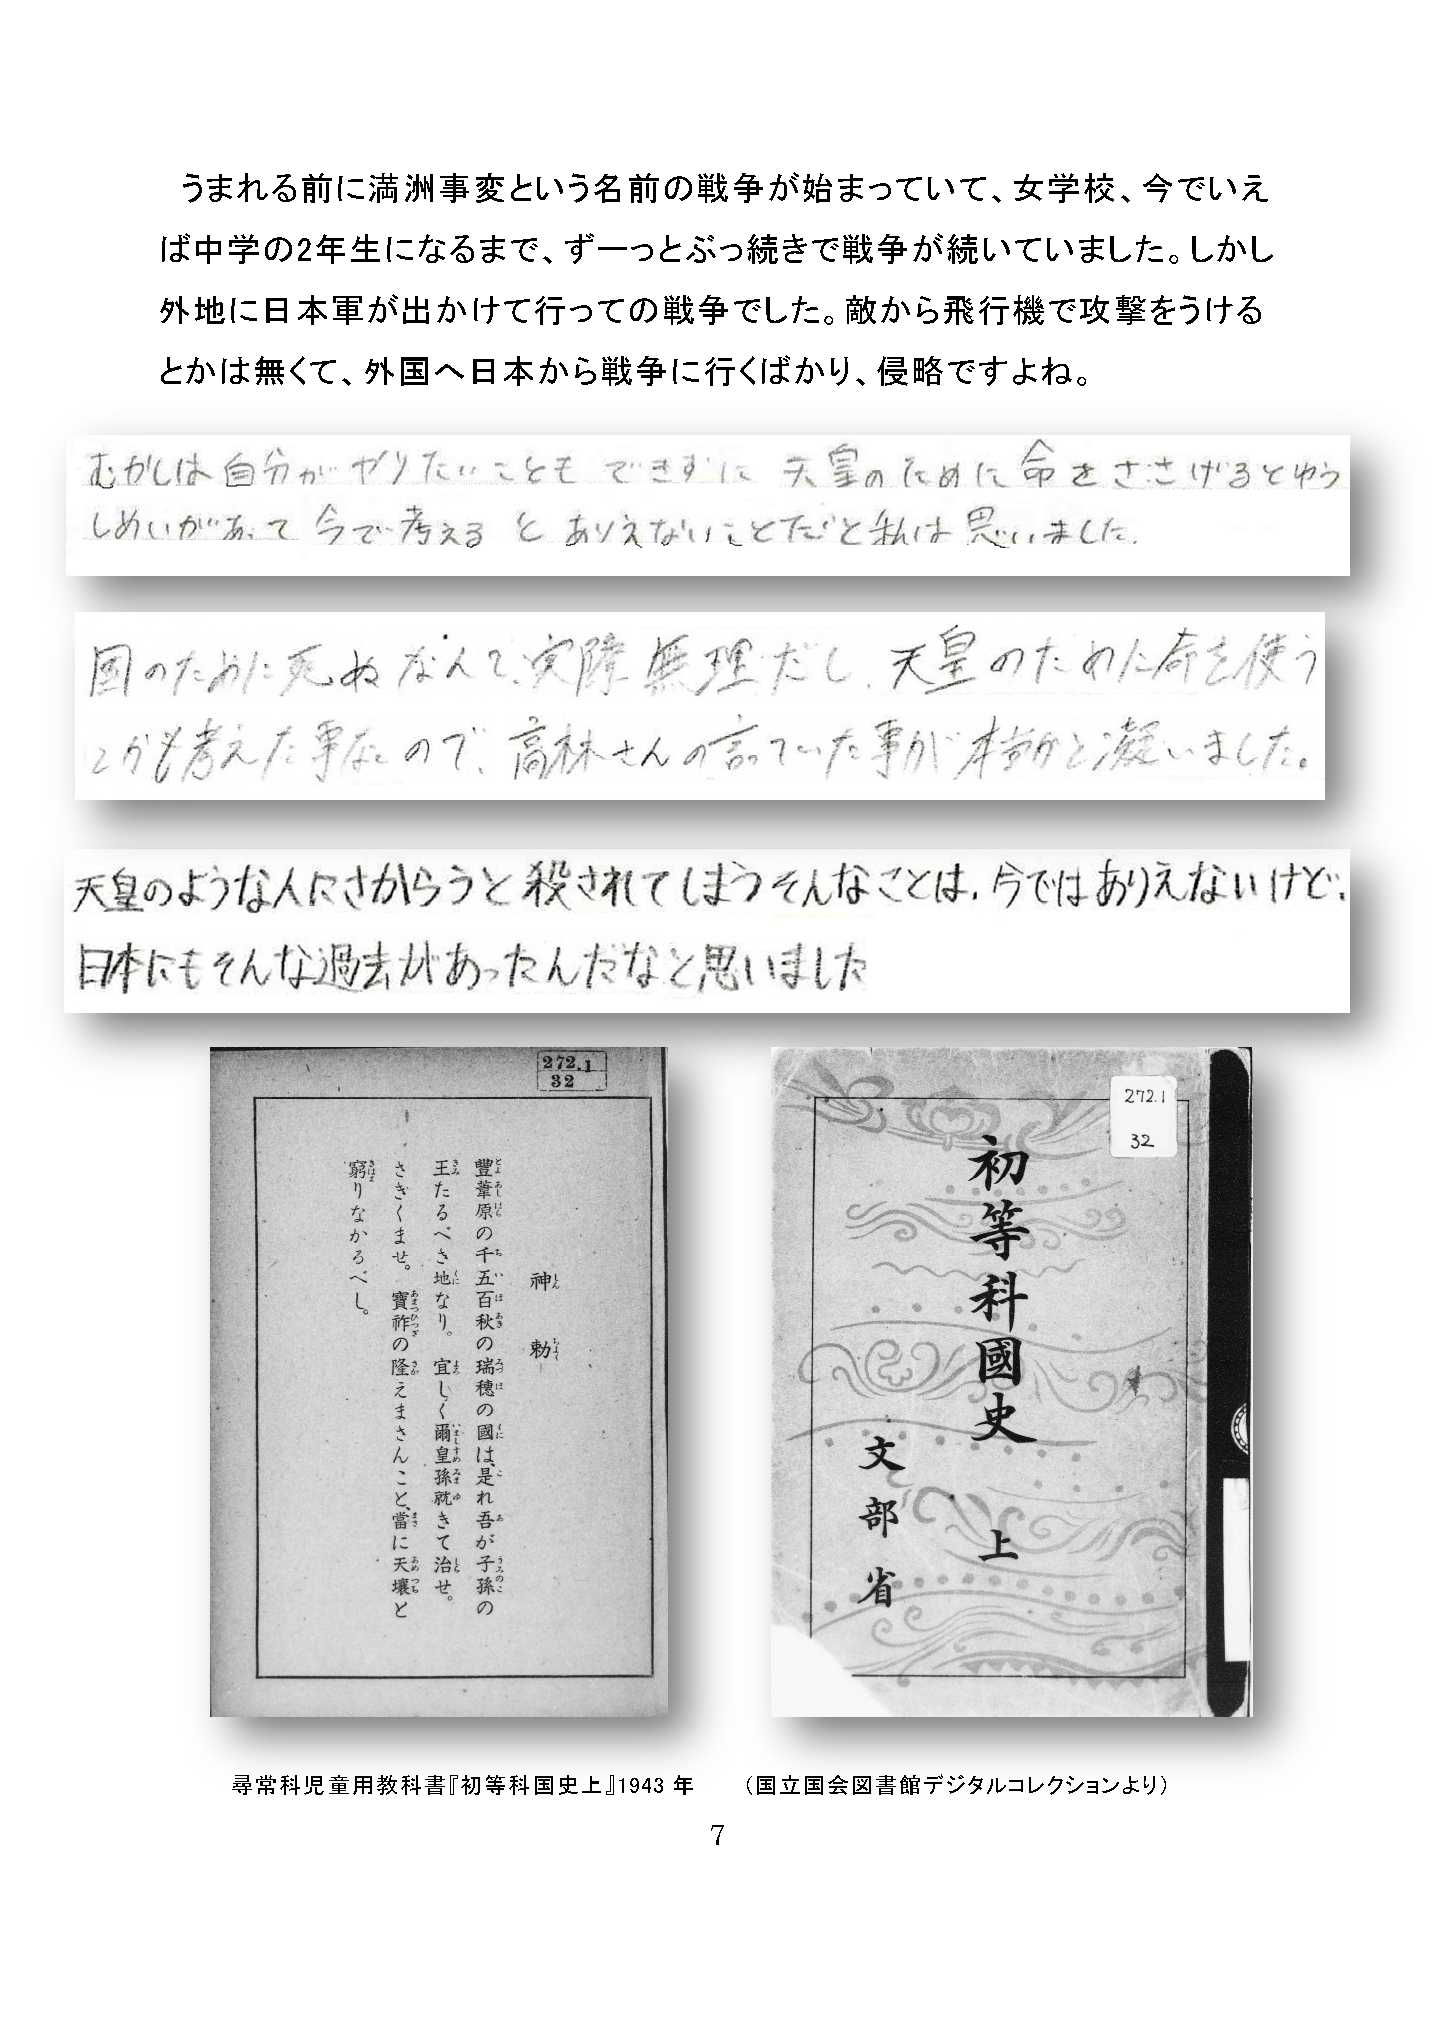 うまれる前に満洲事変という名前の戦争が始まっていて、女学校、今でいえ
ば中学の2年生になるまで、ずーっとぶっ続きで戦争が続いていました。しかし
外地に日本軍が出かけて行っての戦争でした。敵から飛行機で攻撃をうける
とかは無くて、外国へ日本から戦争に行くばかり、侵略ですよね。
むかしは自分がやりたいこともできずに 天皇のために命をささげるとゆう
しめいがあって 今で考えると ありえないことだと私は思いました.
国のために死ぬなんて、実際無理だし、天皇のために命を使う
とかも考えた事ないので、高林さんの言っていた事が本当かと凝いました。
天皇のような人にさからうと殺されてしまうそんなことは、今ではありえないけど、
日本にもそんな過去があったんだなと思いました
272.1
32
神勅
豐葦原の千五百秋の瑞穂の國は、是れ吾が子孫の
王たるべき地なり。宜しく爾皇孫就きて治せ。
さきくませ。寶祚の隆えまさんこと、當に天壤と
窮りなかるべし。
272.1
32
初等科國史 上
文部省
尋常科児童用教科書『初等科国史上』1943年 （国立国会図書館デジタルコレクションより）
7